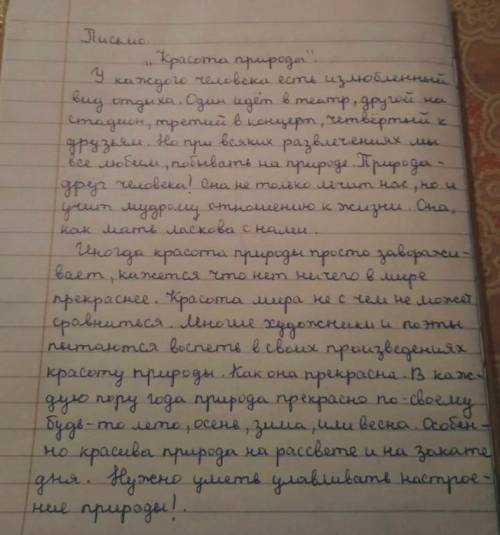 Письмо.
„Красота природы".
У каждого человека есть излюбленный
вид отдыха. Один идёт в театр, другой на
стадион, третий в концерт, четвёртый к
друзьям. Но при всяких развлечениях мы
все любим, побывать на природе. Природа-
друг человека! Она не только лечит нас, но и
учит мудрому отношению к жизни. Она,
как мать ласкова с нами.
Иногда красота природы просто заворажи-
вает, кажется что нет ничего в мире
прекраснее. Красота мира не с чем не может
сравниться. Многие художники и поэты
пытаются воспеть в своих произведениях
красоту природы. Как она прекрасна. В каж-
дую пору года природа прекрасно по-своему
будь-то лето, осень, зима, или весна. Особен-
но красива природа на рассвете и на закате
дня. Нужно уметь улавливать настрое-
ние природы!.